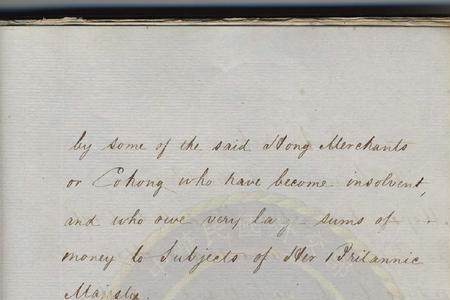 by some of the said Hong Merchants
or Cohong who have become insolvent,
and who owe very sums of
money to Subjects of Her Britannic
Majesty.